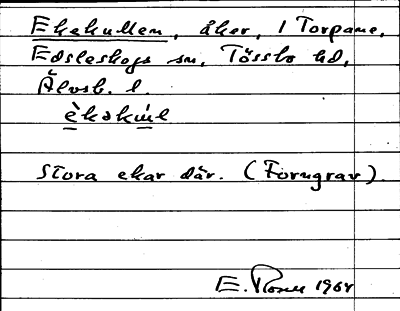 Ekekullen, åker, 1 Torpane,
Edsleskogs sn, Tössbo hd,
Älvsb. l.
èkəkúl
Stora ekar där. (Forngrav).
E. 1964